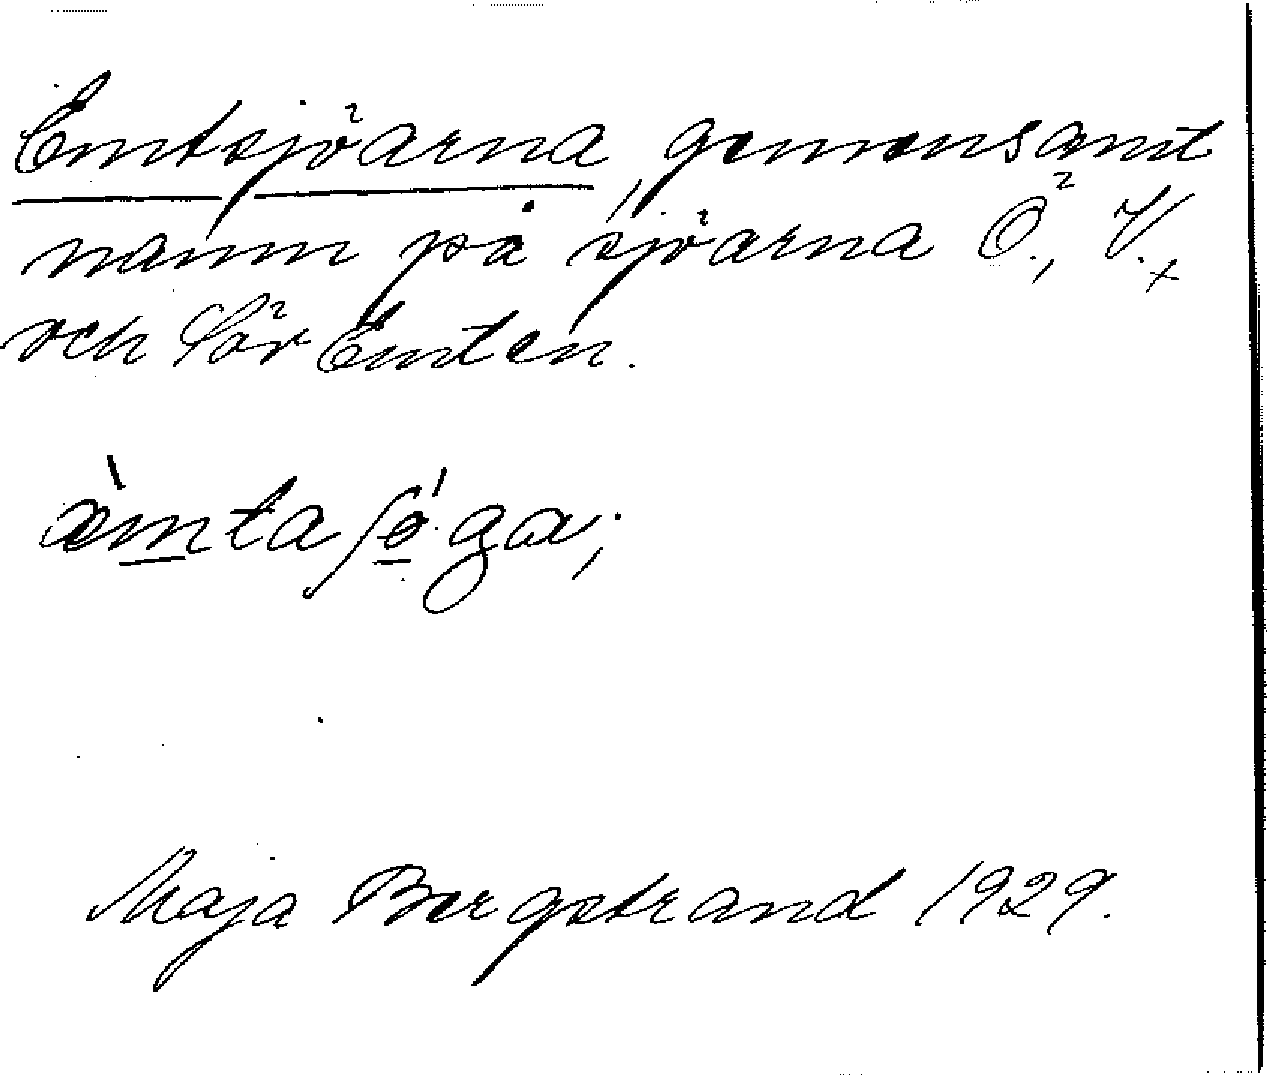 Emtsjöarna, gemensamt
namn på sjöarna Ö., V.,
och Sör Emten.
æ̀mta ʃǿga;
Maja Bergstrand 1929.